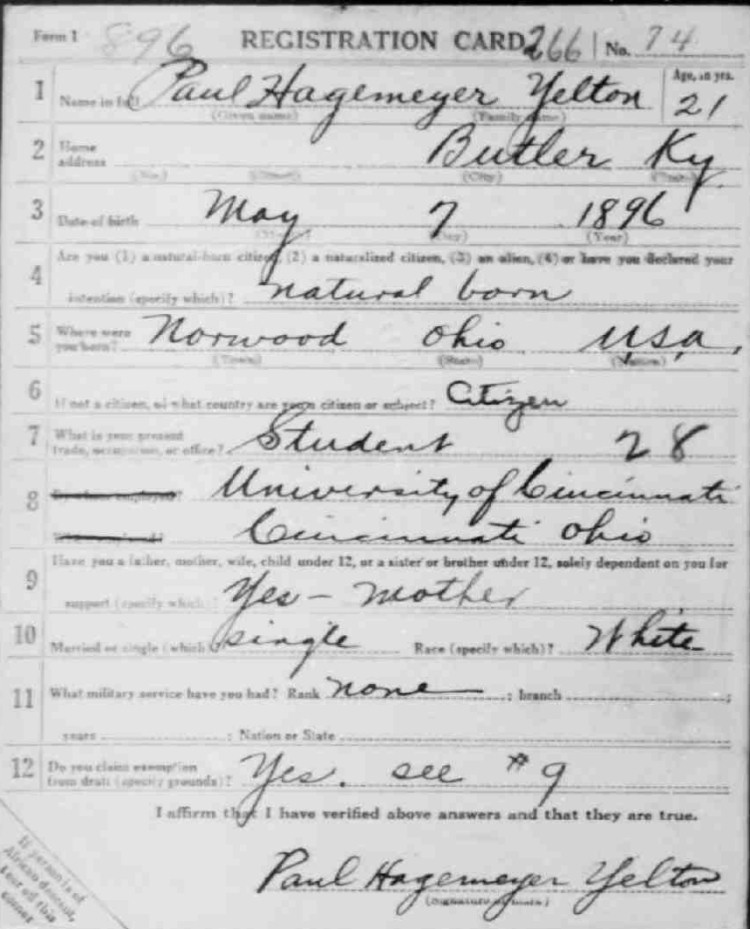 Form 1 896 REGISTRATION CARD 266 No. 74
1 Name in full Paul Hagemeyer Yelton Age, in yrs. 21
(Given name) (Family name)
2 Home address Butler Ky
(No.) (Street) (City) (State)
3 Date of birth May 7 1896
(Month) (Day) (Year)
4 Are you (1) a natural-born citizen, (2) a naturalized citizen, (3) an alien, (4) or have you declared your
intention (specify which)? natural born
5 Where were you born? Norwood Ohio U.S.A.
(Town) (State) (Nation)
6 If not a citizen, of what country are you a citizen or subject? Citizen
7 What is your present trade, occupation, or office? Student 28
8 By whom employed? University of Cincinnati
Cincinnati Ohio
9 Have you a father, mother, wife, child under 12, or a sister or brother under 12, solely dependent on you for
support (specify which)? Yes - mother
10 Married or single (which)? single Race (specify which)? White
11 What military service have you had? Rank none ; branch ;
years ; Nation or State
12 Do you claim exemption from draft (specify grounds)? Yes. see #9
I affirm that I have verified above answers and that they are true.
Paul Hagemeyer Yelton
(Signature or mark)
If person is of
African descent,
tear off this
corner